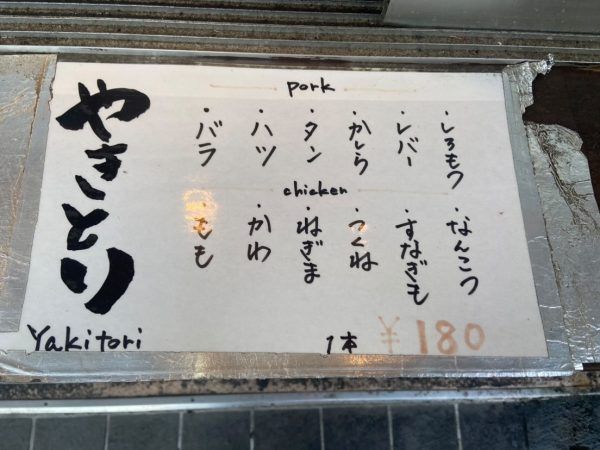 やきとり
Yakitori
pork
・しろもつ
・レバー
・かしら
・タン
・ハツ
・バラ
chicken
・なんこつ
・すなぎも
・つくね
・ねぎま
・かわ
・もも
1本 ¥180